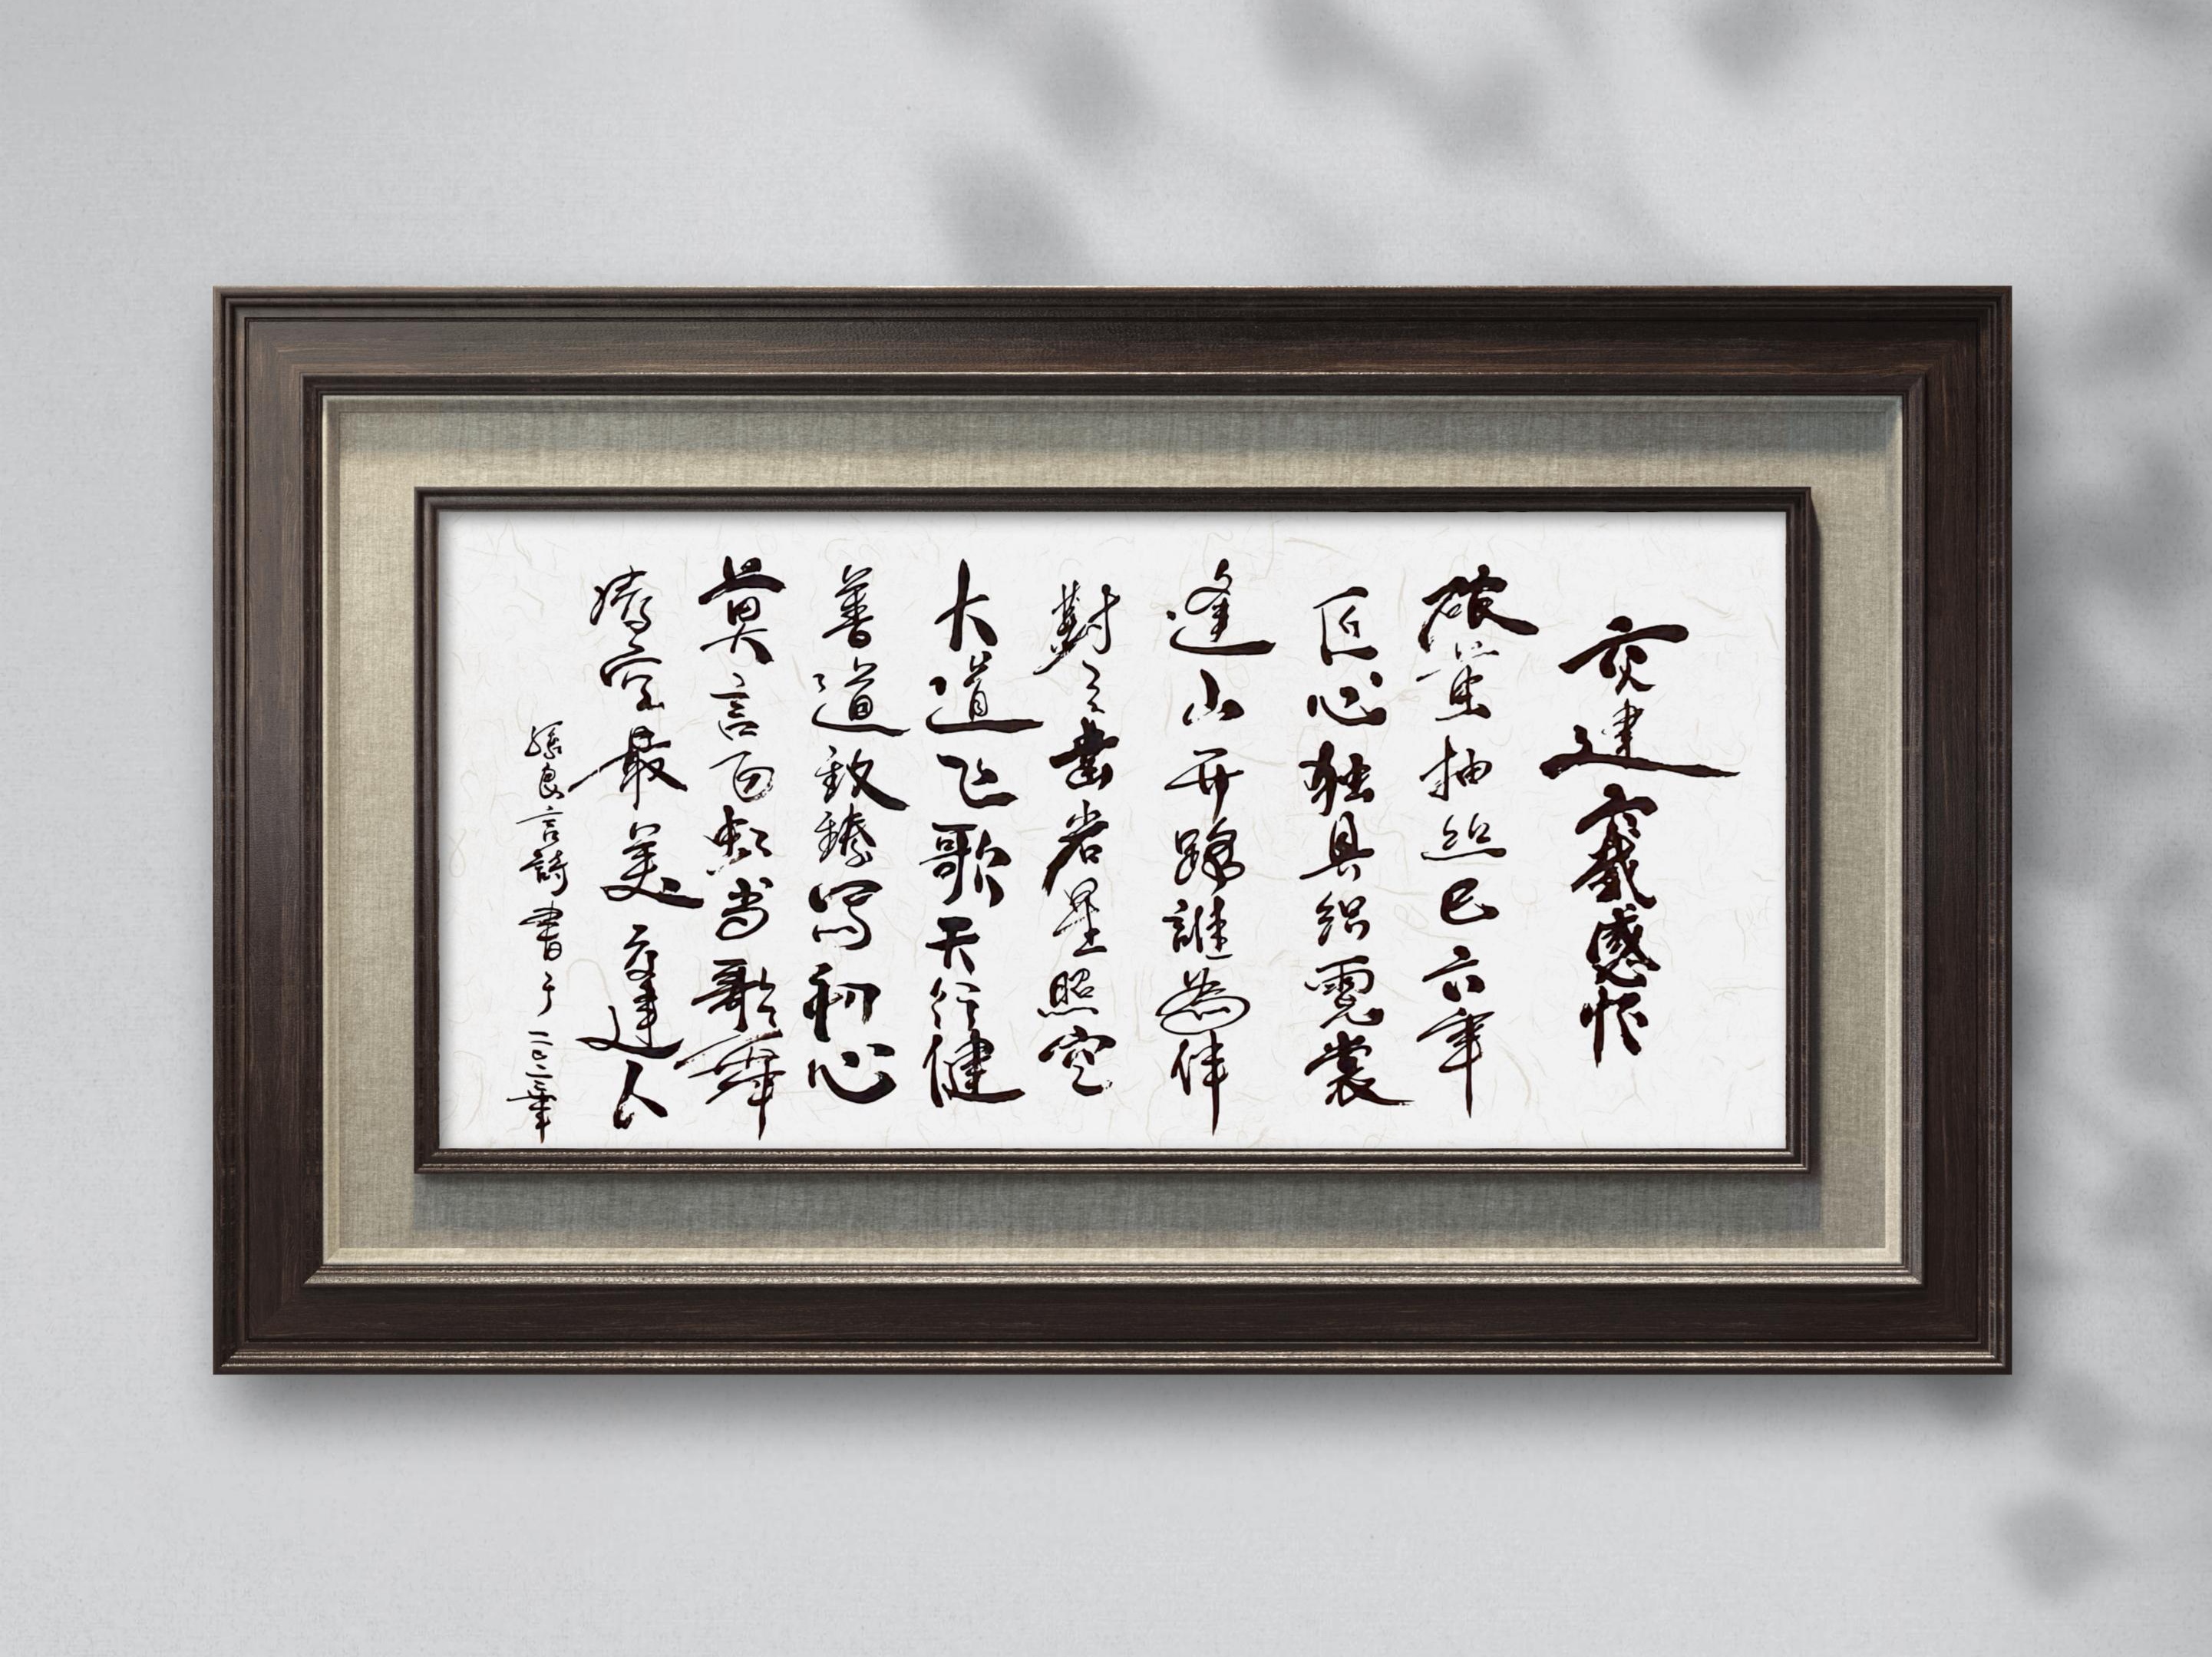 交建六載感怀
破茧抽丝已六年
匠心独具织霓裳
逢山开路誰為伴
對岩星照空
大道飞歌天行健
善道致臻写初心
莫言当歌舞
最美交建人
良言詩書于二〇二三年